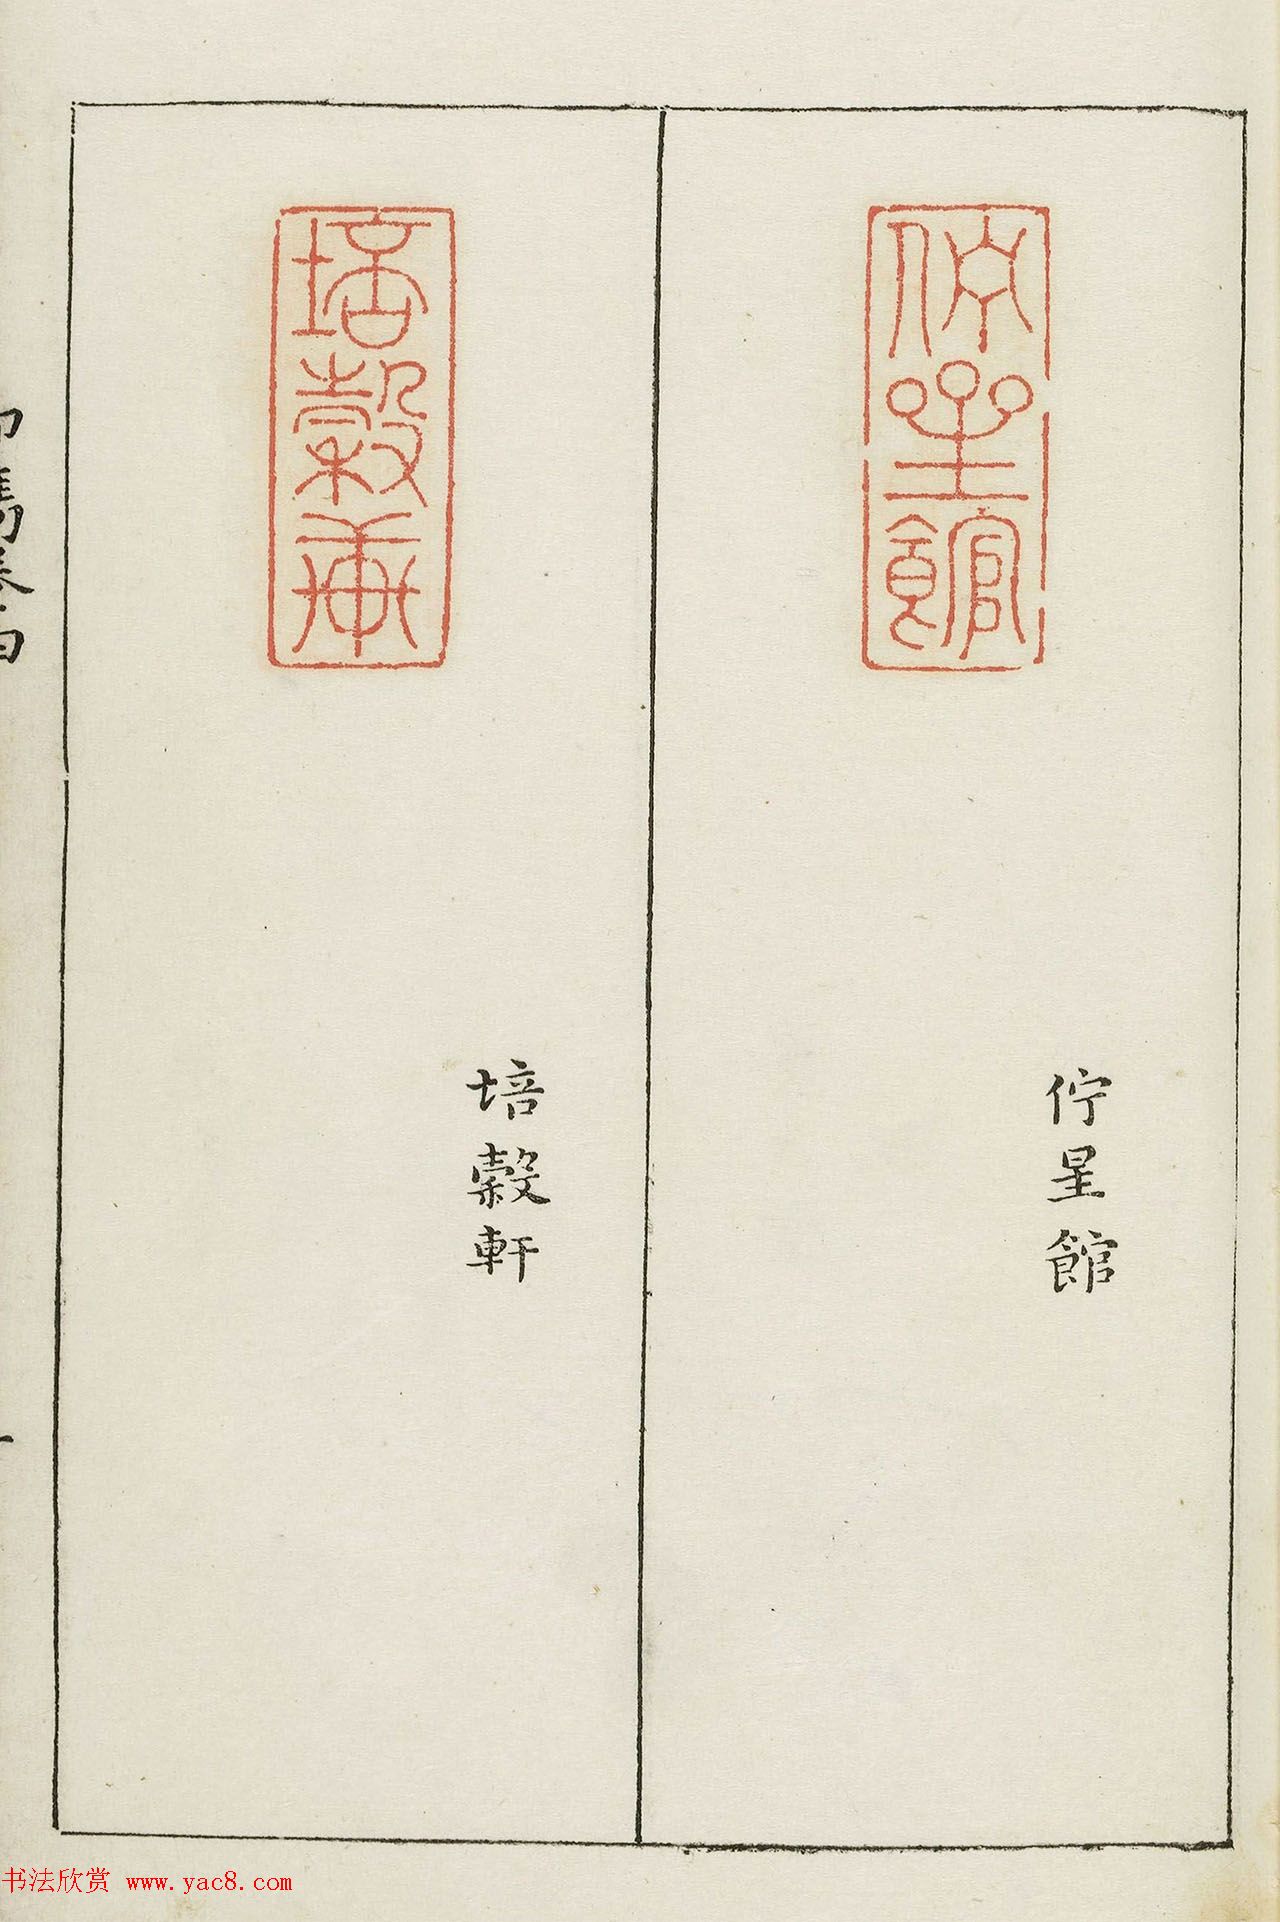 佇星館
佇星館
培穀軒
培穀軒
书法欣赏 www.yac8.com